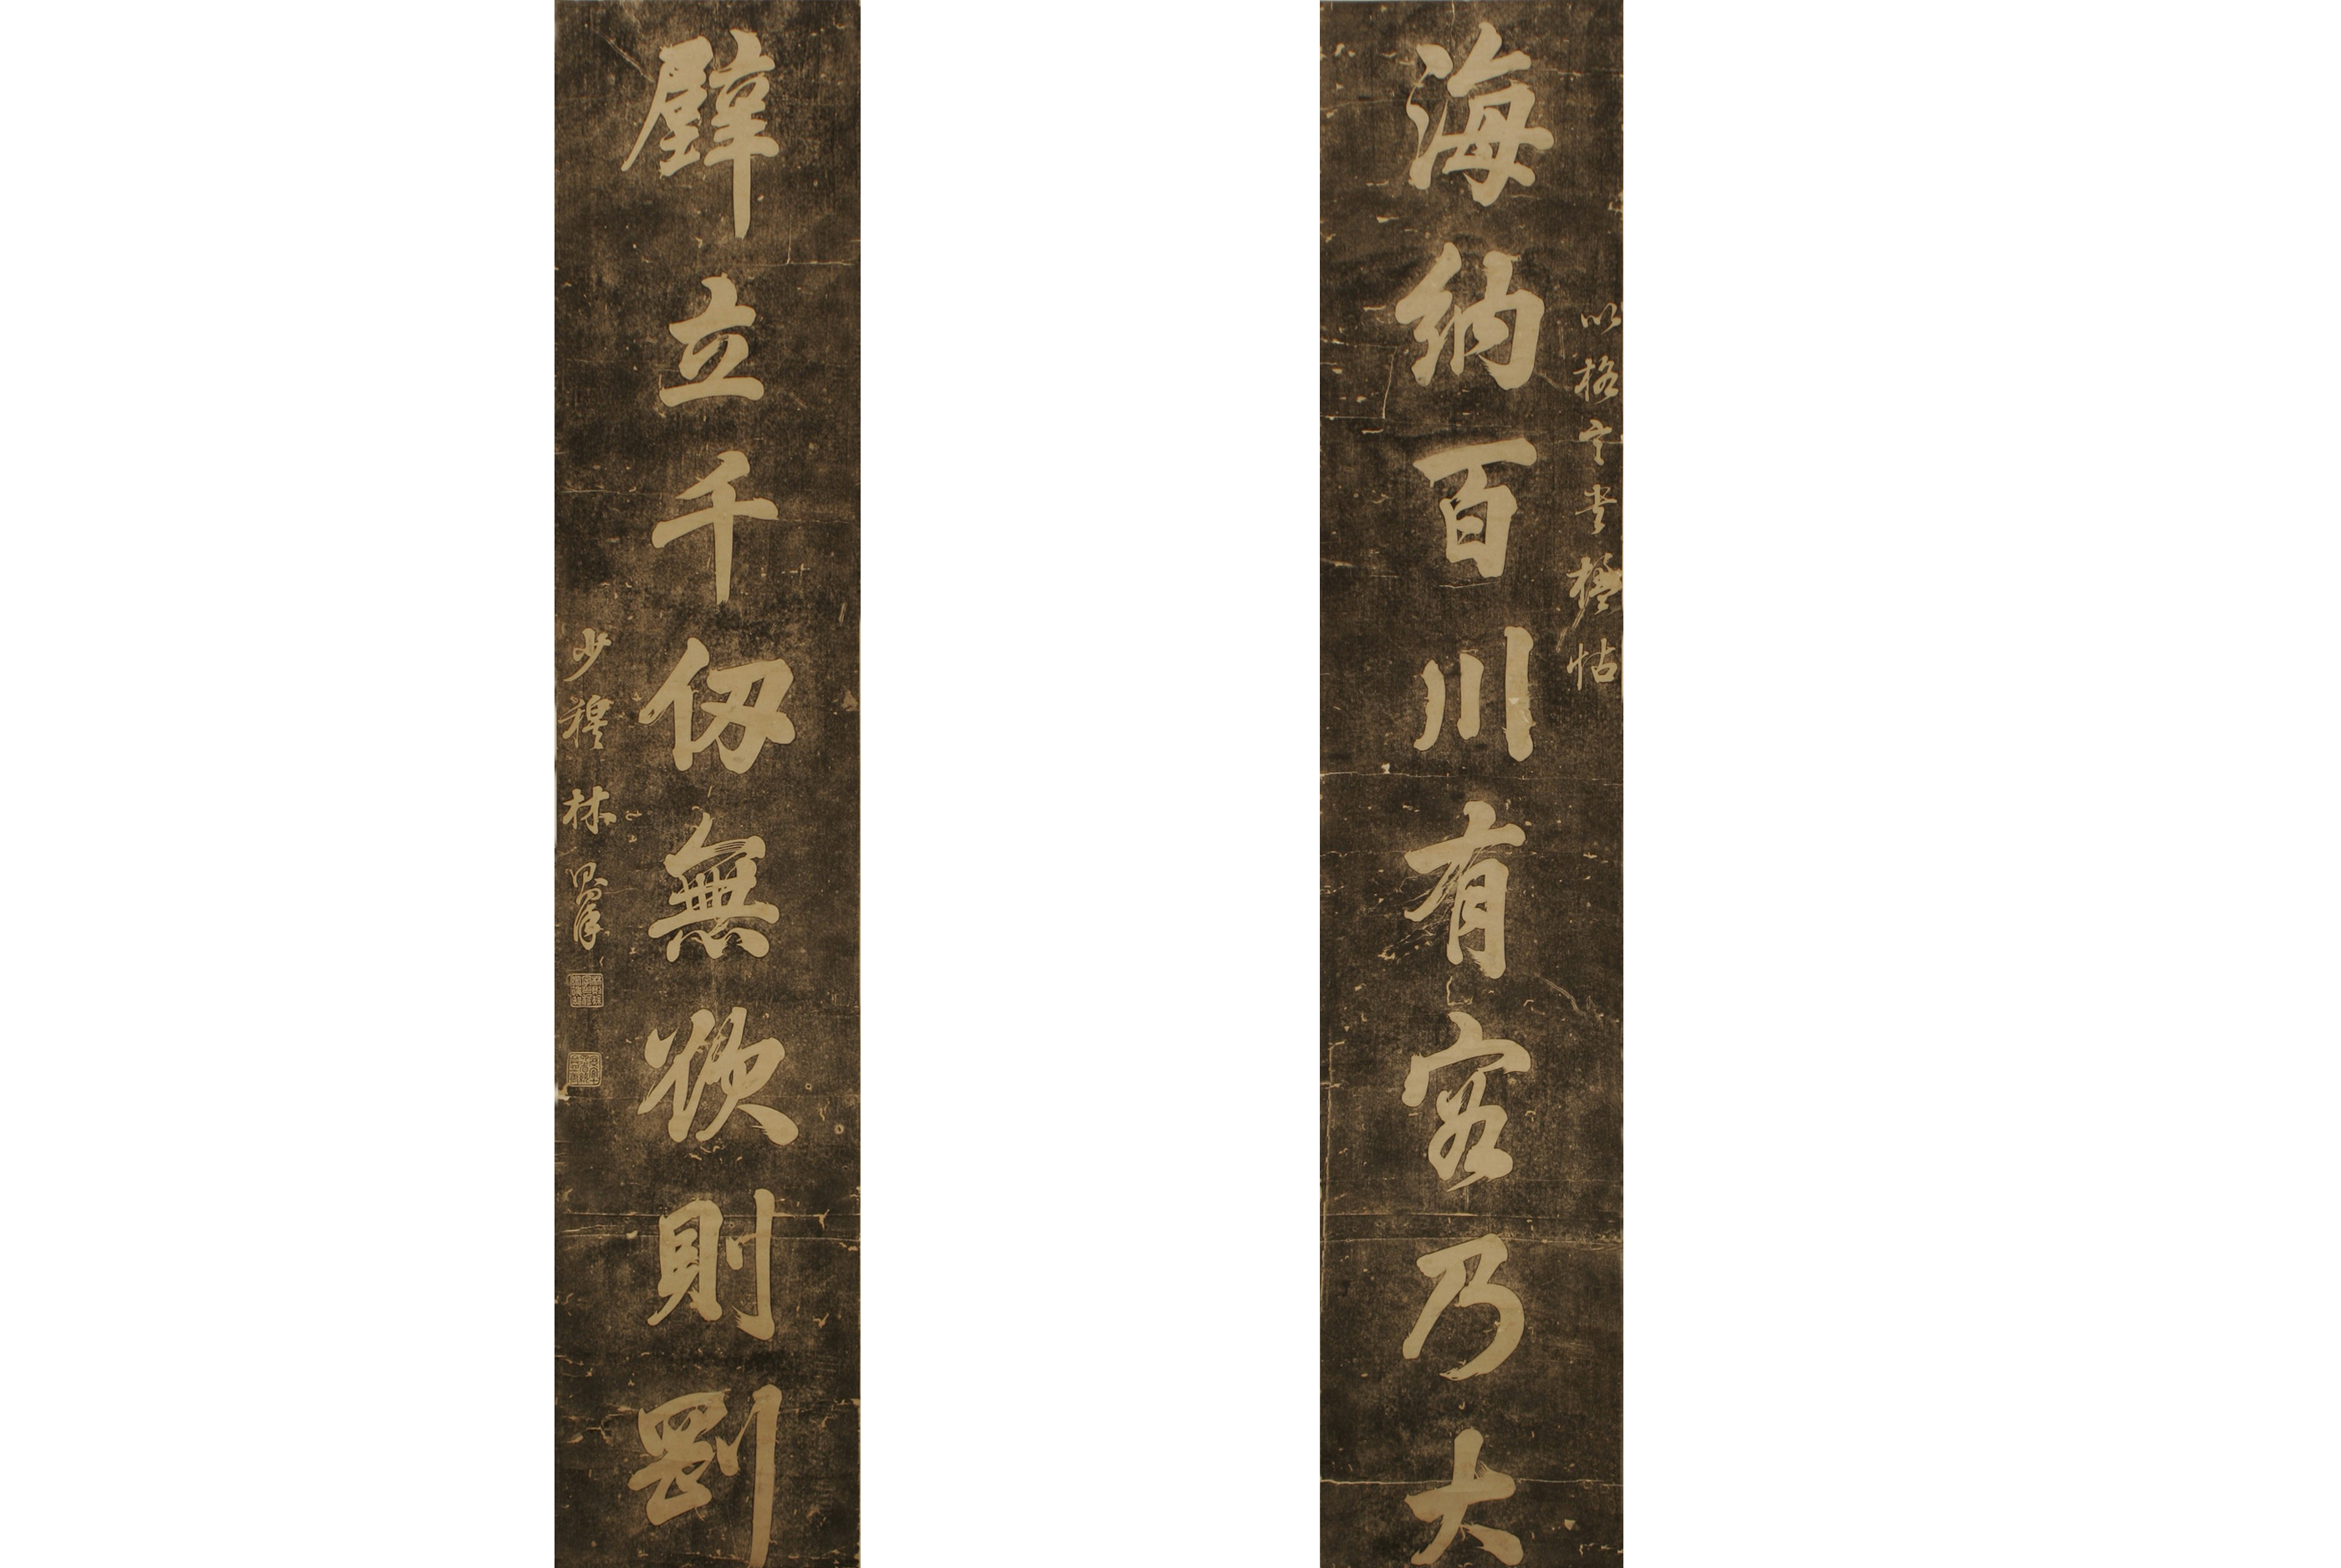 以格言書楹帖
海納百川有容乃大
壁立千仞無欲則剛
少穆林則徐